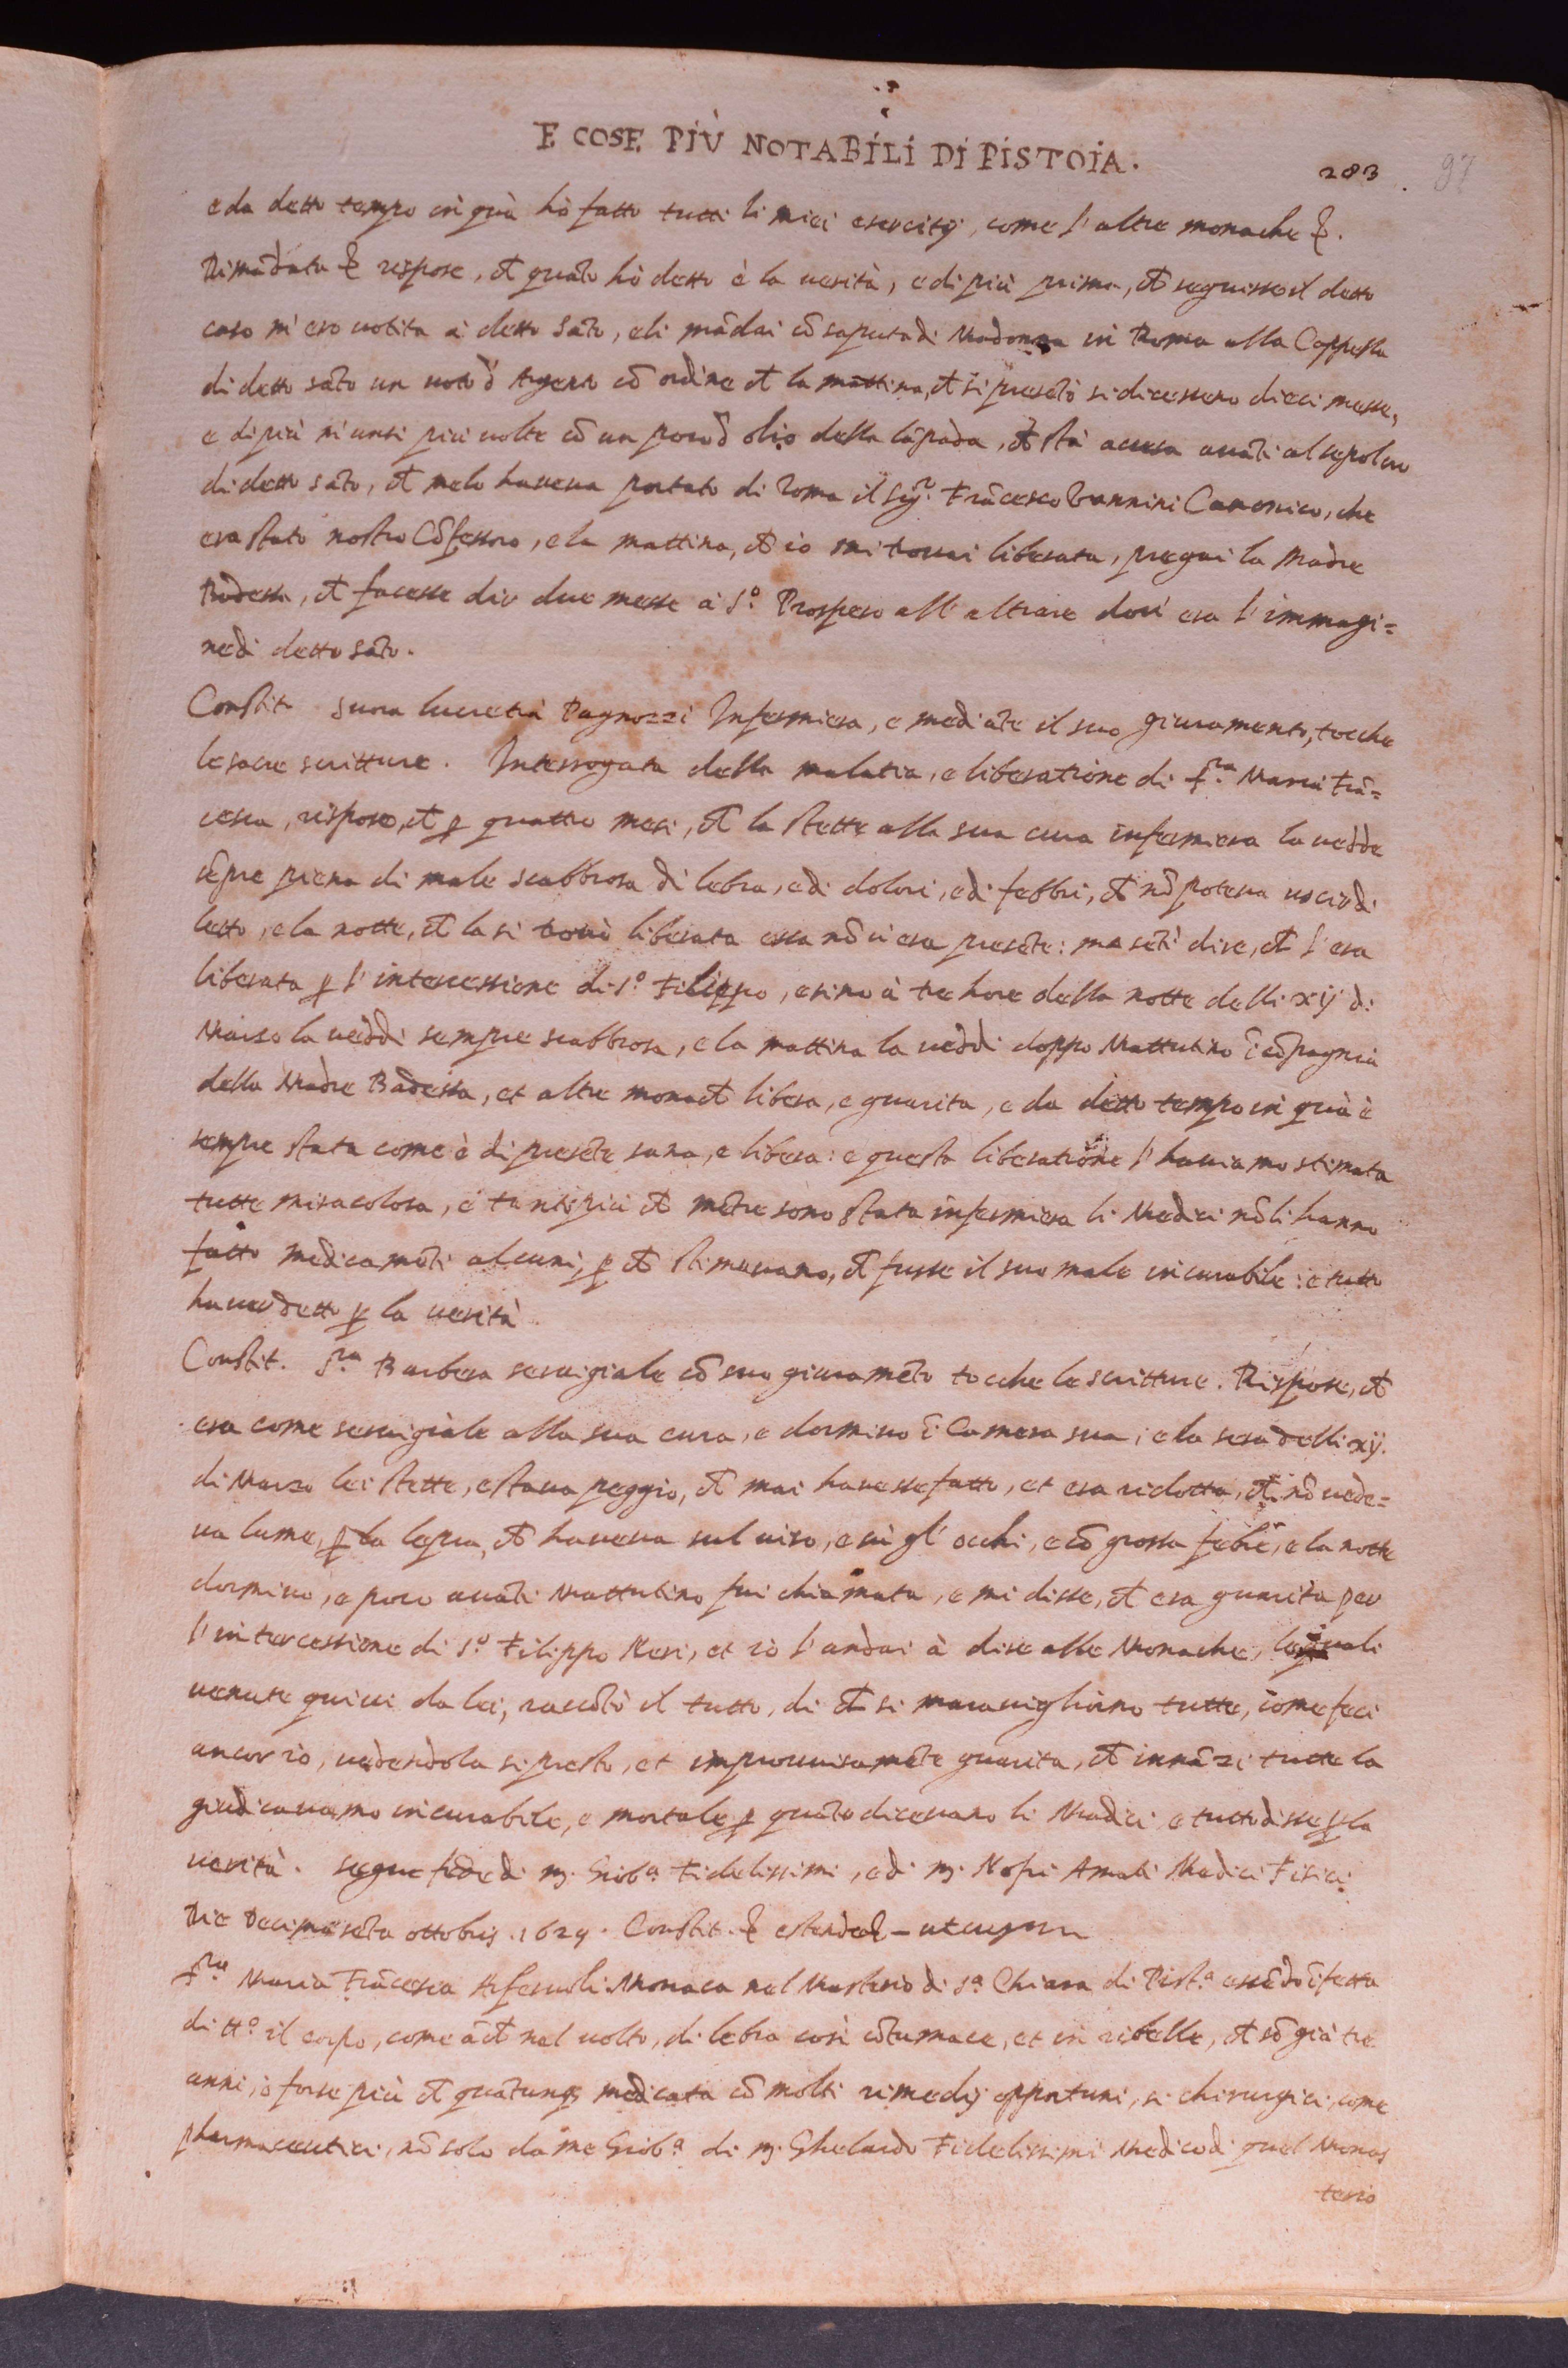 E COSE PIÙ NOTABILI DI PISTOIA.
283 97
e da detto tempo in quà hò fatto tutti li miei esercitij, come l'altre monache &.
Dimãdata & rispose, ch̃ quãto hò detto è la uerità, e di più prima, ch̃ seguisse il detto
caso m'ero uotita à detto Sãto, e li mãdai cõ saputa di Madonna in Roma alla Cappella
di detto sãto un uoto d'Argento cõ ordine ch̃ la mattina, ch̃ si presẽtò si dicessero dieci messe,
e di più m'unsi più uolte cõ un poco d'olio della lãpada, ch̃ stà accesa auãti al sepolcro
di detto sãto, ch̃ melo haueua portato di Roma il Sig.r Frãcesco Vannini Canonico, che
era stato nostro Cõfessoro, e la mattina, ch̃ io mi trouai liberata, pregai la Madre
Badessa, ch̃ facesse dir due messe à S.o Prospero all'altare dou'era l'immagi=
ne di detto sãto.
Constit. Suora Lucretia Pagnozzi Infermiera, e mediãte il suo giuramento, tocche
le sacre scritture. Interrogata della malatia, e liberatione di S.ra Maria Frã=
cesca, rispose, ch̃ p quattro mesi, ch̃ la stette alla sua cura infermiera la uedde
sẽpre piena di male scabbrosa di lebra, e di dolori, e di febbri, ch̃ nõ poteua uscir di
letto, e la notte, ch̃ la si trouò liberata essa nõ ui era presẽte: ma sẽtì dire, ch̃ l'era
liberata p l'intercessione di S.o Filippo, e sino à tre hore della notte delli xij di
Marzo la ueddi sempre scabbrosa, e la mattina la ueddi doppo Mattutino ĩ cõpagnia
della Madre Badessa, et altre monach̃ libera, e guarita, e da detto tempo in quà è
sempre stata come è di presẽte sana, e libera: e questa liberatione l'hauiamo stimata
tutte miracolosa, e tanto più ch̃ mẽtre sono stata infermiera li Medici nõ li hanno
fatto medicamẽti alcuni, p ch̃ stimauano, ch̃ fusse il suo male incurabile: e tutto
hauer detto p la uerità
Constit. S.ra Barbera seruigiale cõ suo giuramẽto tocche le scritture. Rispose, ch̃
era come seruigiale alla sua cura, e dormiuo ĩ Camera sua, e la sera delli xij.
di Marzo lei stette, e staua peggio, ch̃ mai hauesse fatto, et era ridotta, ch̃ nõ uede=
ua lume, p la lepra, ch̃ haueua sul uiso, e sù gl'occhi, e cõ grossa febre, e la notte
dormiuo, e poco auãti Mattutino fui chiamata, e mi disse, ch̃ era guarita per
l'intercessione di S.o Filippo Neri, et io l'andai à dire alle Monache, le quali
uenute quiui da lei, raccõtò il tutto, di ch̃ si marauigliorno tutte, come feci
ancor io, uedendola sì presto, et improuuisamẽte guarita, ch̃ innãzi tutte la
giudicauamo incurabile, e mortale p quãto diceuano li Medici e tutto disse p la
uerità. Segue fede di m. Giob.a Fidelissimi, e di m. Nofri Amati Medici Fisici.
Die Decimasẽta ottobris 1629. Constit. &
S.ra Maria Frãcesca Arferuoli Monaca nel Mon.sterio di S.a Chiara di Pist.a essẽdo ĩfetta
di tt.o il corpo, come ãch̃ nel uolto, di lebra così cõtumace, et in ribelle, ch̃ sõ già tre
anni, ò forse più ch̃ quãtunq; medicata cõ molti rimedij opportuni, sì chirurgici, come
pharmaceutici, nõ solo da me Giob.a di m. Gherardo Fidelissimi Medico di quel Monas
terio